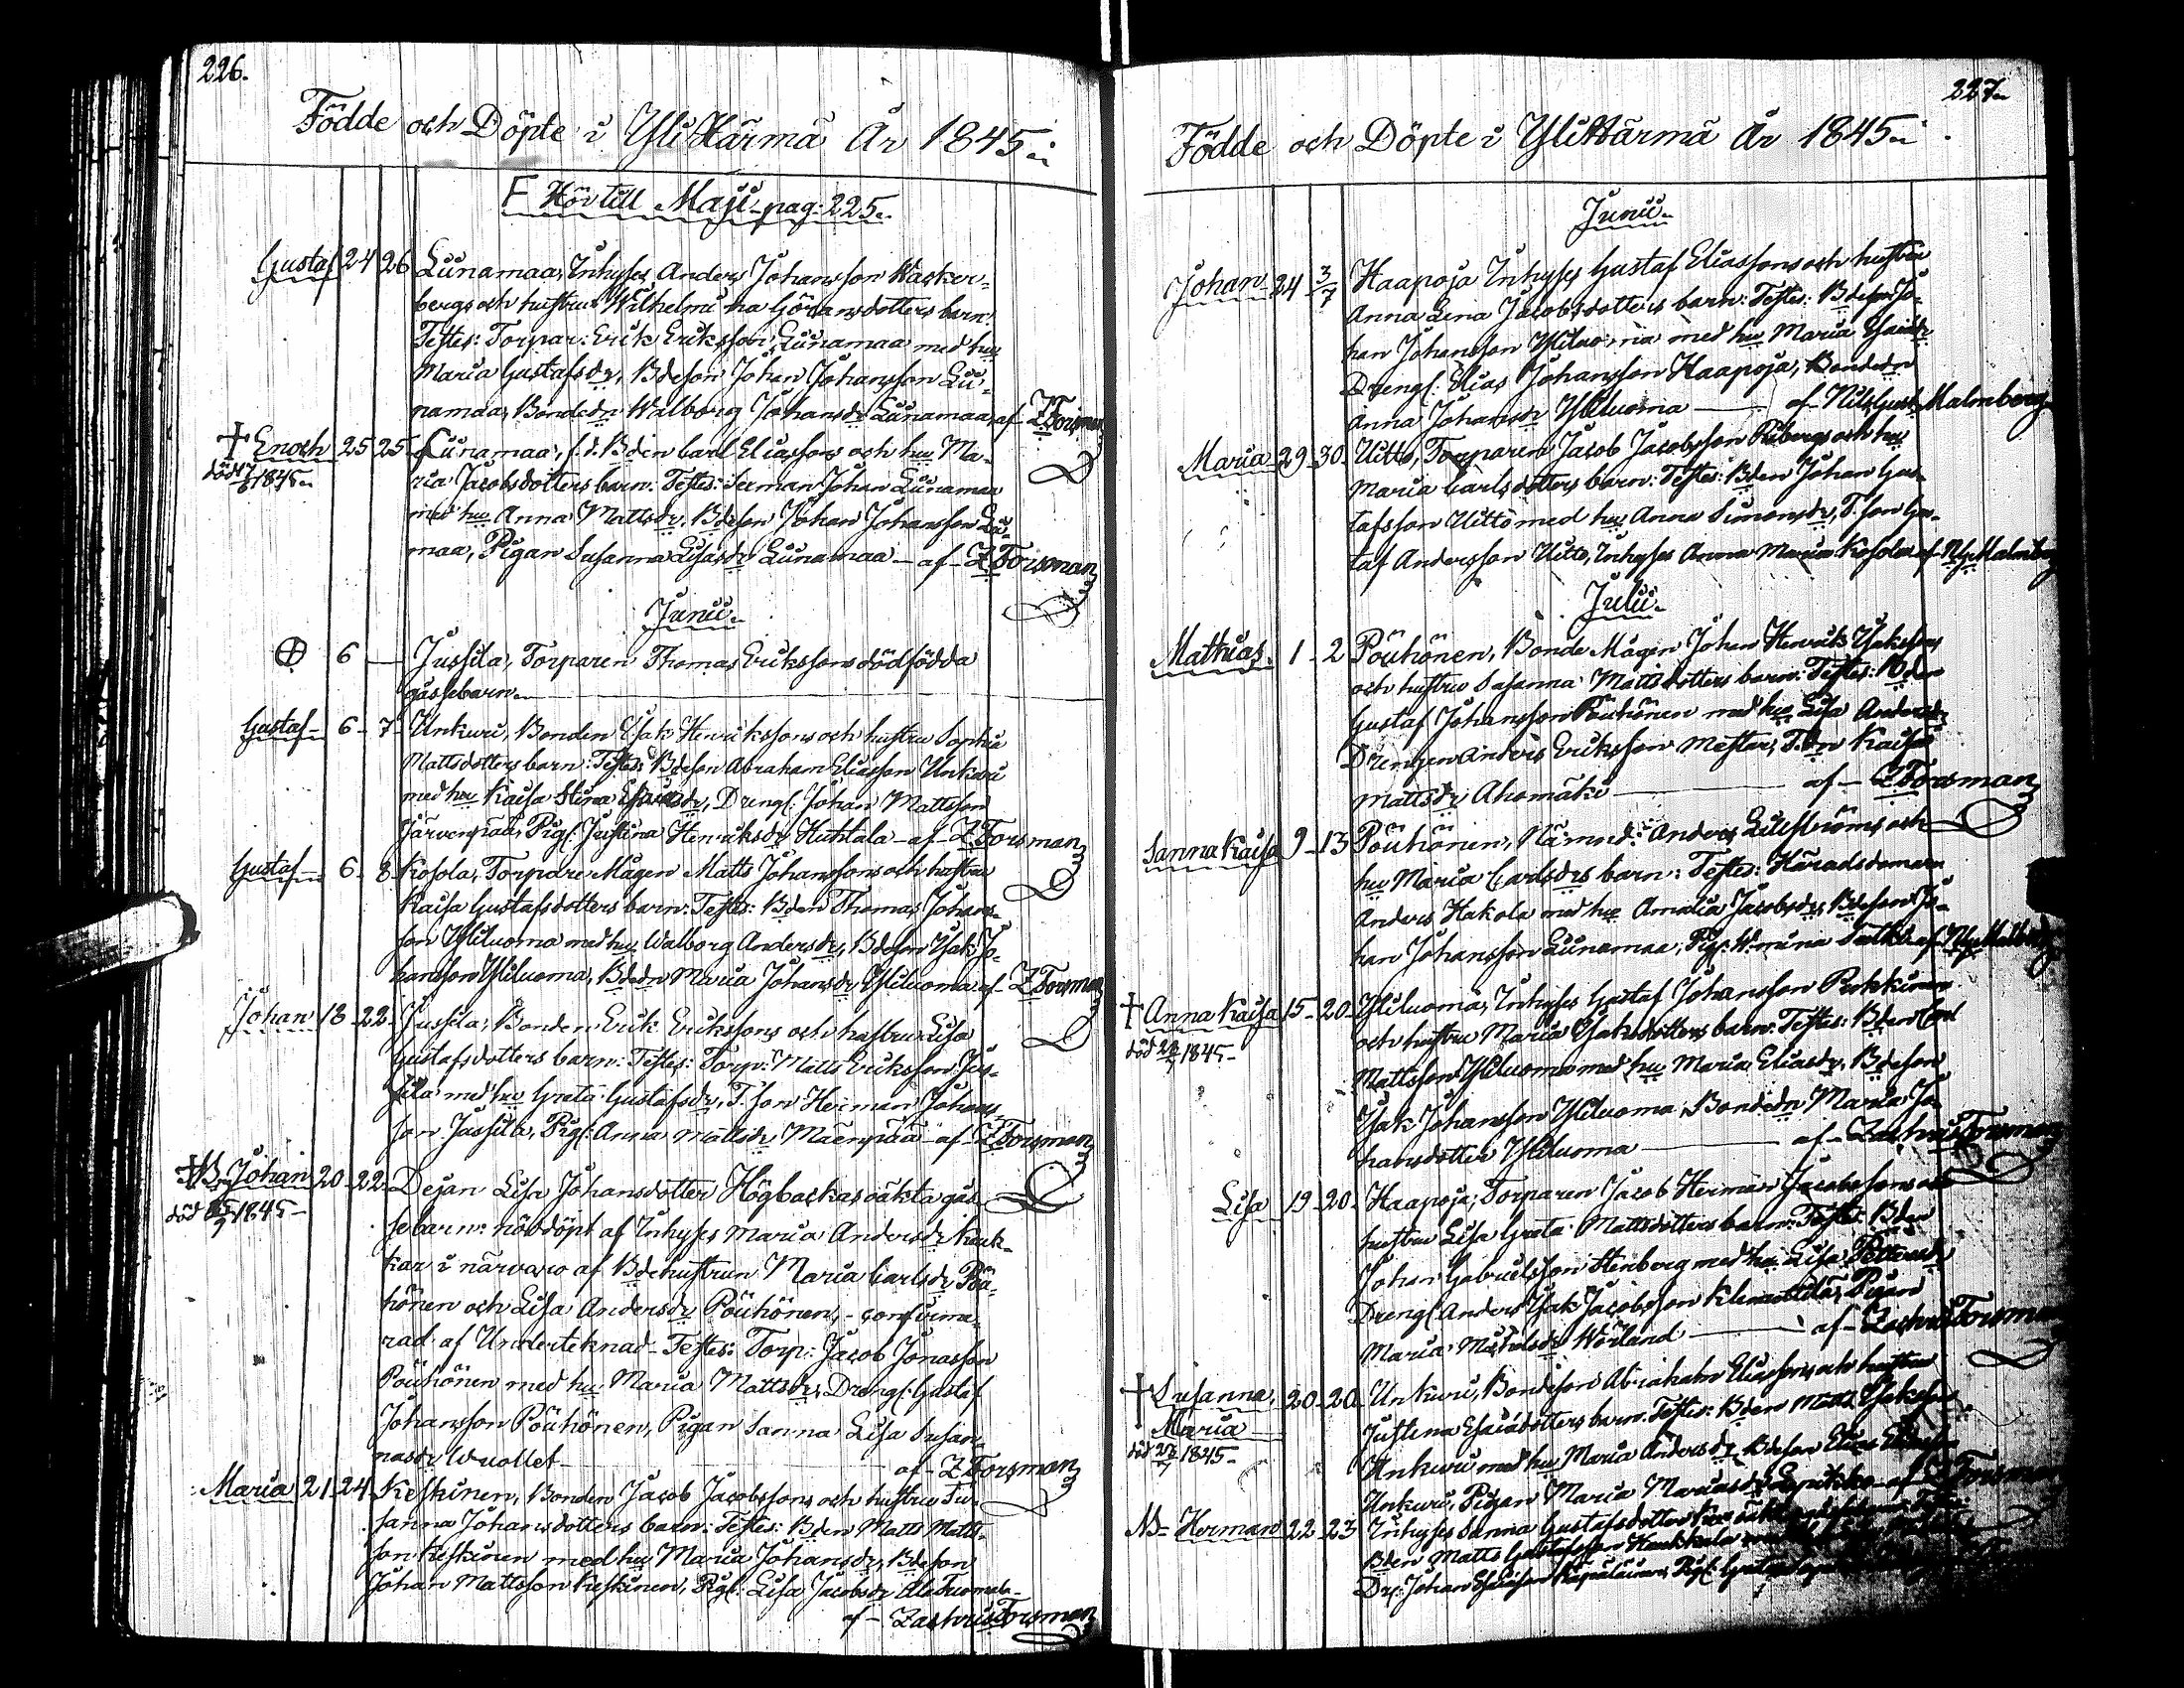 226.
Födde och Döpte i Yli Härmä År 1845.
F Hör till Maji pag: 225.
Gustaf 24 26 Liinamaa, Inhyses Anders Johansson Wasker-
bergs och hustru Wilhelmina Göransdotters barn.
Testes: Torpar: Erik Eriksson Liinamaa med hu
Maria Gustafsdr, Bdeson Johan Johansson Lii-
namaa, Bondedr Walborg Johansdr Liinamaa, af Z Forsman
† Enoch 25 25 Liinamaa, f.d. Bden Carl Eliassons och hu Ma-
död 1845.
ria Jacobsdotters barn. Testes: Johan Liinamaa
med hu Anna Mattsdr, Bdeson Johan Johansson
maa, Pigan Susanna Liinamaa – af – Z Forsman
Junii.
6 — Jussila, Torparen Thomas Erikssons dödfödda
gossebarn.
Gustaf 6 7 Unkuri, Bonden Isak Henrikssons och hustru Sophia
Mattsdotters barn: Testes: Bdeson Abraham Eliasson Unkuri
med hu Kaisa Stina Esaiasdr, Drengs: Johan Mattsson
Järvenpää, Pigs: Justina Henriksdr Huhtala – af – Z Forsman
Gustaf 6 8 Kosola, Torpare Mågen Matts Johanssons och hustru
Kaisa Gustafsdotters barn: Testes: Bden Thomas Johans-
son Yliluoma med hu Walborg Andersdr, Bdeson Isak Jo-
hansson Yliluoma, Bdedr Maria Johansdr Yliluoma af – Z Forsman
Johan 18 22 Jussila, Bonden Erik Erikssons och hustru Lisa
Gustafsdotters barn: Testes: Torp: Matts Eriksson Jus-
sila med hu Greta Gustafsdr, T. son Herman Johans-
son Jussila, Pigs: Anna Mattsdr Mäenpää – af – Z Forsman
† Johan 20 22 Dejan Lisa Johansdotter Högbackas oäkta gås-
död 1845 –
sebarn: nöddöpt af Inhyses Maria Andersdr Kauk-
kar i närvaro af Bdehustrun Maria Carlsdr Pöü-
hönen och Lisa Andersdr Pöuhönen, – confirme-
rad af Underteknad – Testes: Torp: Jacob Jonasson
Pöuhönen med hu Maria Mattsdr, Drengs: Gustaf
Johansson Pöuhönen, Pigan Sanna Lisa Susan-
nasdr Wuollet — af – Z Forsman
Maria 21 24 Keskinen, Bonden Jacob Jacobssons och hustru Su-
sanna Johansdotters barn: Testes: Bden Matts Matts-
son Keskinen med hu Maria Johansdr, Bdeson
Johan Mattsson Keskinen, Pigs: Lisa Jacobsdr
af – Zachris Forsman
227.
Födde och Döpte i Yli Härmä År 1845.
Junii.
Johan 24 3/7 Haapoja Inhyses Gustaf Eliassons och hustru
Anna Lena Jacobsdotters barn: Testes: Bdeson Jo-
han Johansson Yliluoma med hu Maria
Drengs: Elias Johansson Haapoja, Bondedr
Anna Johansdr Yliluoma — af – Nils Gust. Malmberg
Maria 29 30 Uitto, Torparen Jacob Jacobsson och hu
Maria Carlsdotters barn: Testes: Bden Johan Gus-
tafsson Uitto med hu Anna Simonsdr, T. son Gus-
taf Andersson Uitto, Inhyses Anna Maria Kosola af Malmberg
Julii.
Mathias 1 2 Pöuhönen, Bonde Mågen Johan Henrik Isakssons
och hustru Susanna Mattsdotters barn: Testes: Bden
Gustaf Johansson Pöuhönen med hu Lisa Andersdr
Drengen Anders Eriksson T. dr Kaisa
Mattsdr Ahomäki — af – Z Forsman
Sanna Kaisa 9 13 Pöuhönen, Nämnd: Anders Liliströms och
hu Maria Carlsdrs barn: Testes: Häradsdomaren
Anders Hakola med hu Amalia Jacobsdr, Bdeson Jo-
han Johansson Liinamaa, Pigs: af Malmberg
† Anna Kaisa 15 20 Yliluoma, Inhyses Gustaf Johansson
död 1845 –
och hustru Maria Isaksdotters barn: Testes: Bden Carl
Mattsson Yliluoma med hu Maria Eliasdr, Bdeson
Isak Johansson Yliluoma, Bondedr Maria Jo-
hansdotter Yliluoma — af – Zachris Forsman
Lisa 19 20 Haapoja, Torparen Jacob Herman Jacobssons och
hustru Lisa Greta Mattsdotters barn: Testes: Bden
Johan Gabrielsson Stenberg med hu Lisa
Drengs: Anders Isak Jacobsson Pigan
Maria — af – Zachris Forsman
† Susanna 20 20 Unkuri, Bondeson Abraham Eliassons och hustru
Maria
död 1845 –
Justina Esaiædotters barn. Testes: Bden Matts Isaksson
Unkuri med hu Maria Andersdr, Bdeson Elias
Unkuri, Pigan Maria af Z Forsman
Herman 22 23 Inhyses Sanna Gustafsdotter
Bden Matts Gustafsson
Dr: Johan Esaiasson